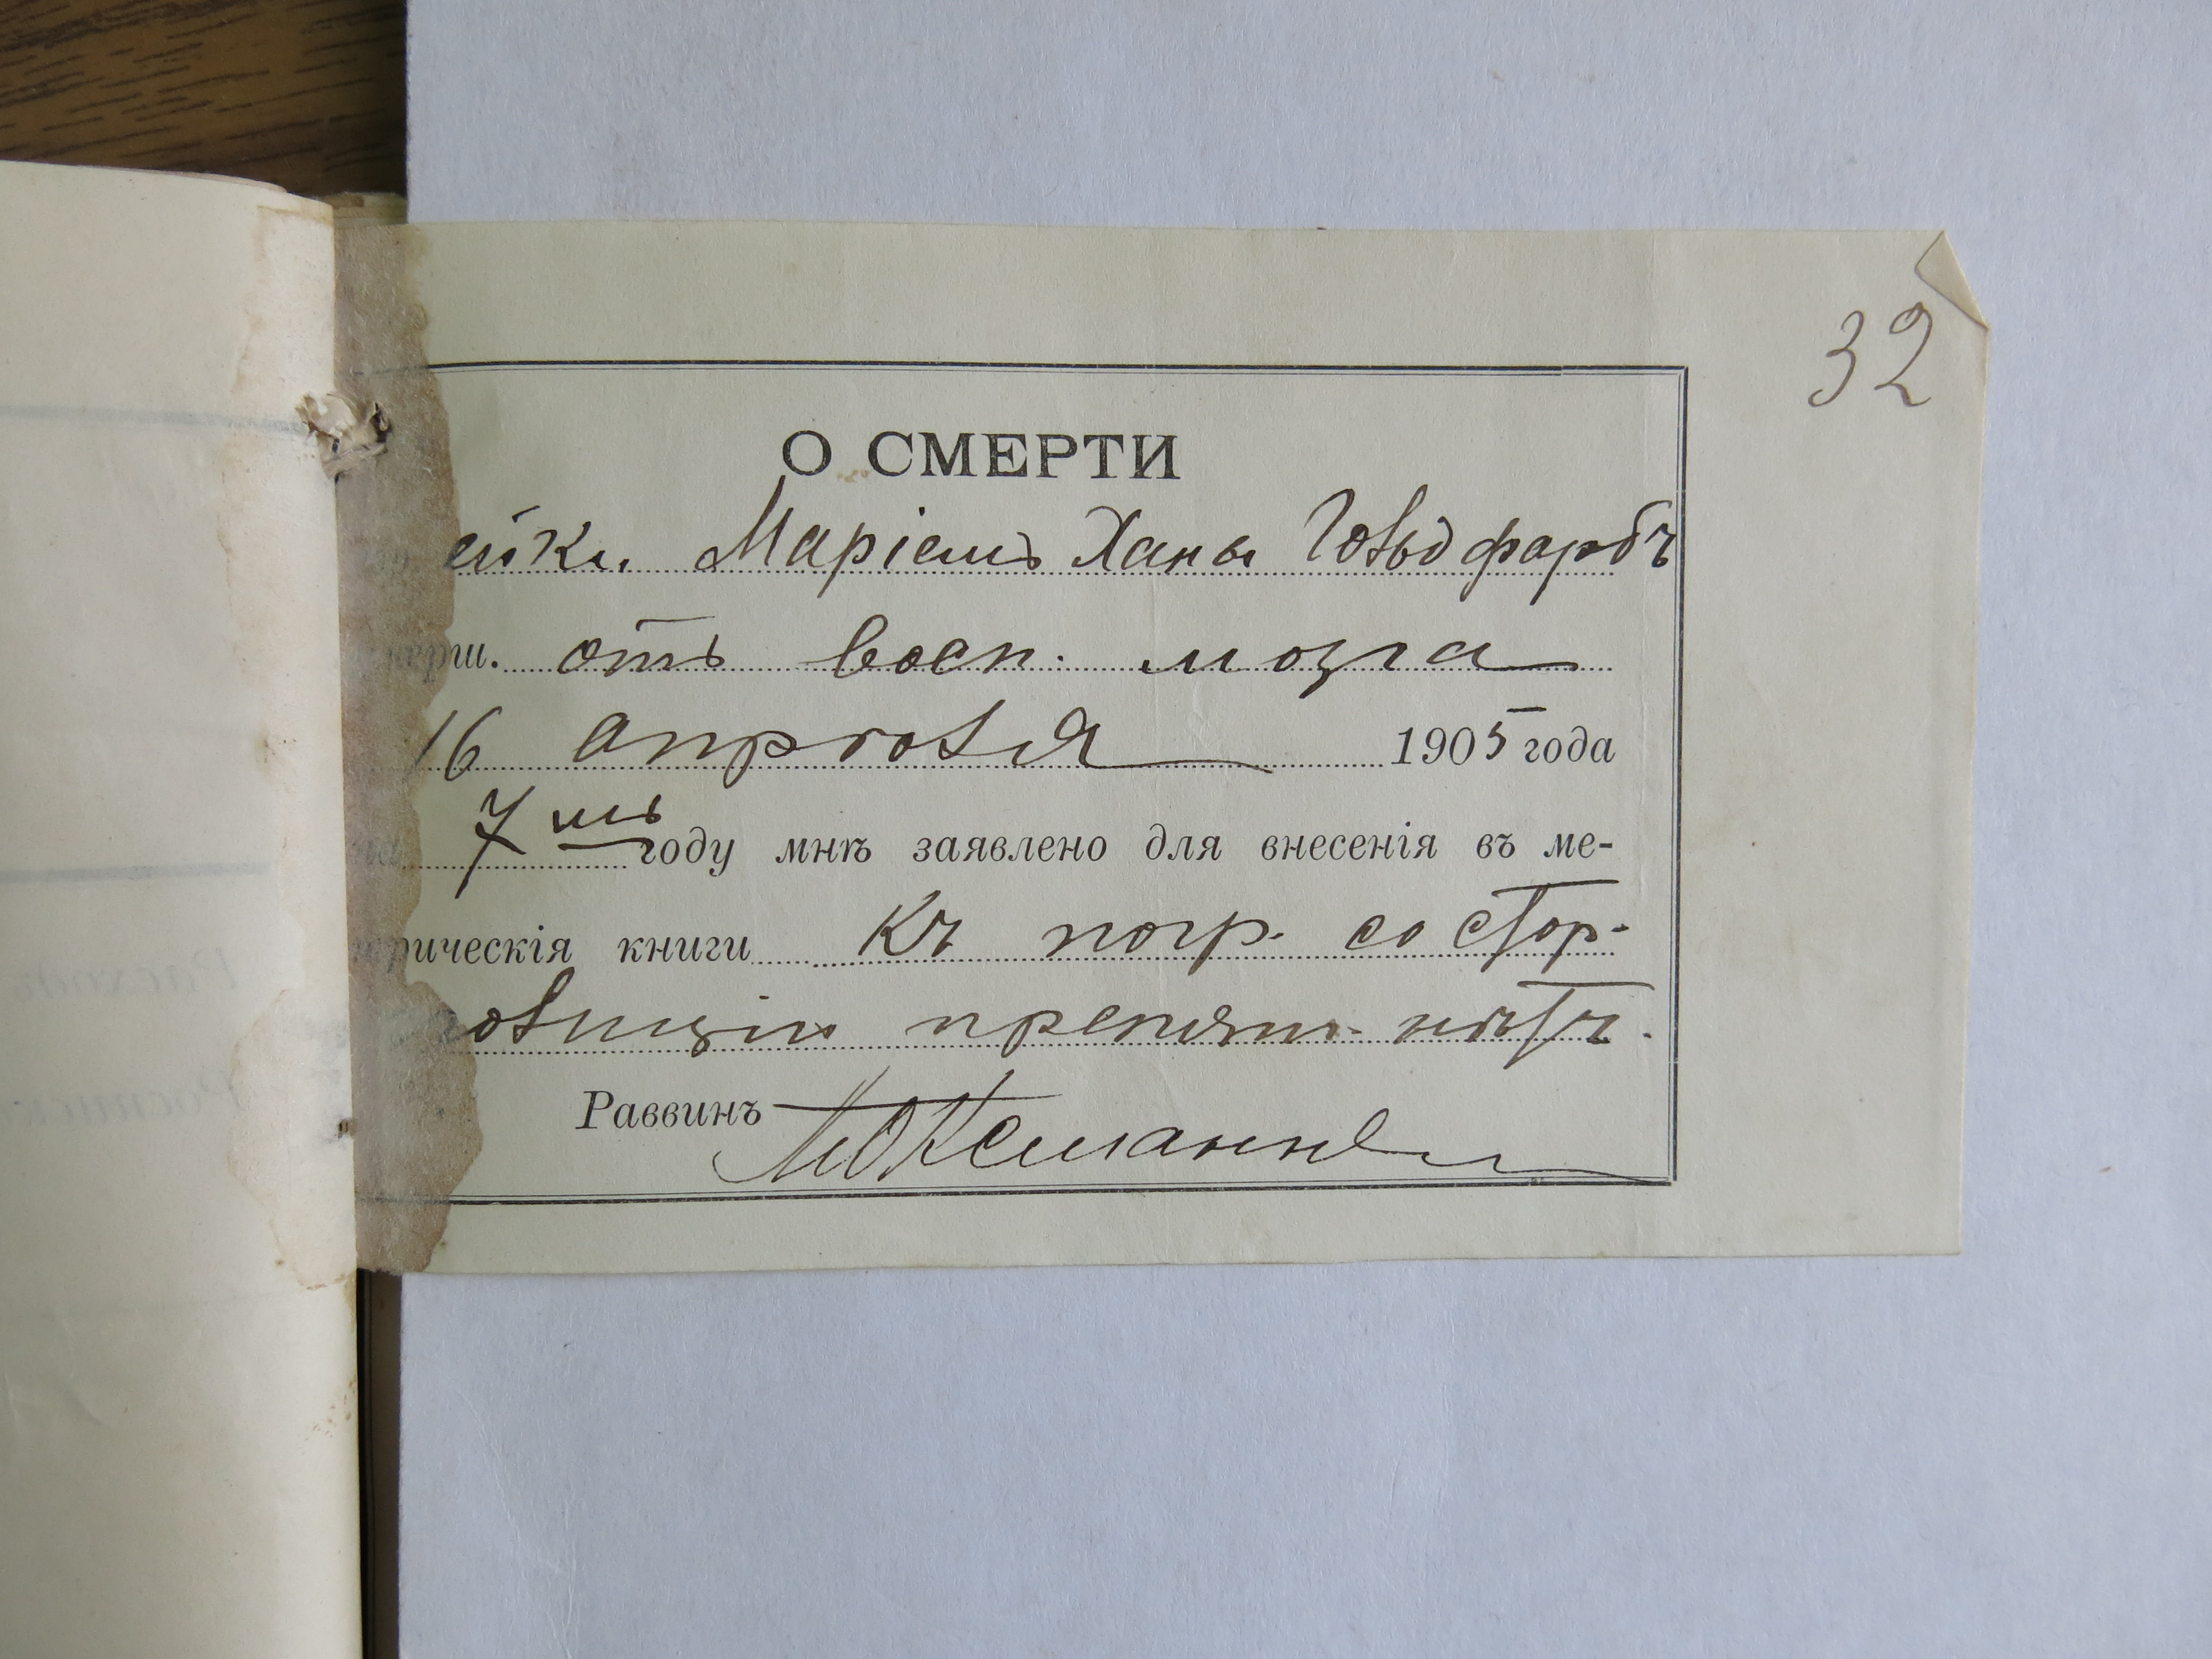 32
О СМЕРТИ
ейки Маріемъ Ханы Гольдфарбъ
мерш. отъ восп. мозга
16 апрѣля 1905 года
на 7мъ году мнѣ заявлено для внесенія въ ме-
трическія книги Къ погр. со стор.
полиціи препятст. нѣтъ.
Раввинъ